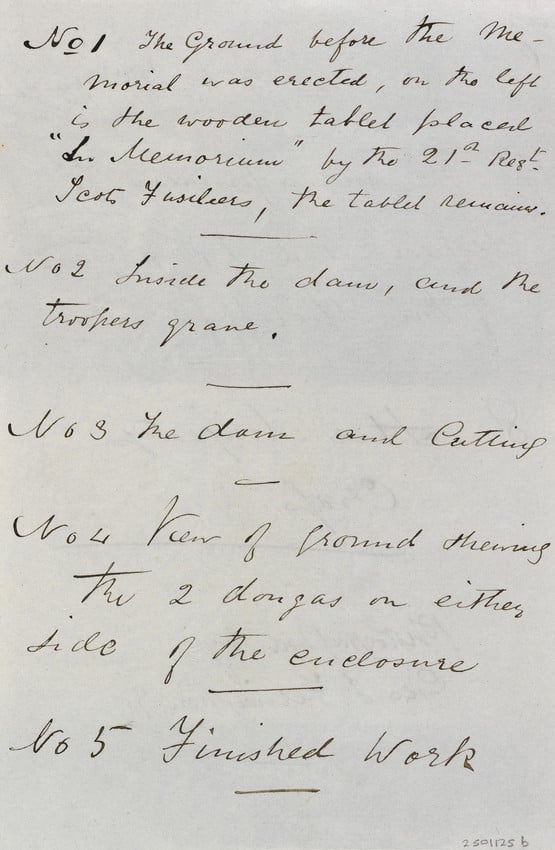 No 1 The Ground before the Me-
morial was erected, on the left
is the wooden tablet placed
"In Memorium" by the 21st Regt
Scots Fusileers, the tablet remains.
No 2 Inside the dam, and the
troopers grave.
No 3 The dam and Cutting
No 4 View of ground shewing
the 2 dongas on either
side of the enclosure
No 5 Finished Work
2501125 b